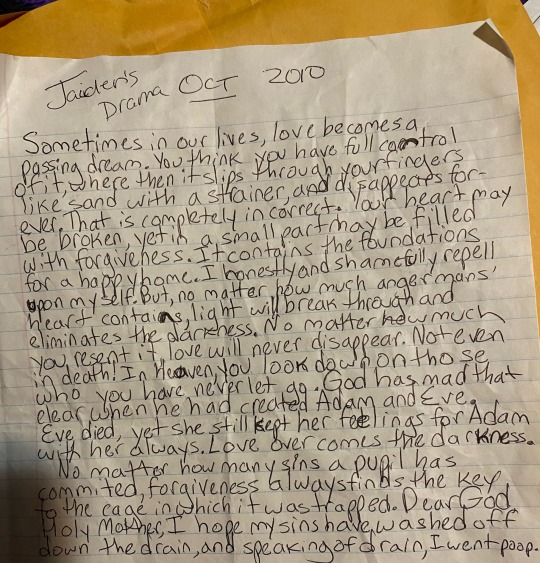 Jaiden's
Drama OCT 2010
Sometimes in our lives, love becomes a
passing dream. You think you have full control
of it, where then it slips through your fingers
like sand with a strainer, and disappears for-
ever. That is completely incorrect. Your heart may
be broken, yet in a small part may be filled
with forgiveness. It contains the foundations
for a happy home. I honestly and shamefully repell
upon my self. But, no matter how much anger mans'
heart contains, light will break through and
eliminates the darkness. No matter how much
you resent it, love will never disappear. Not even
in death! In Heaven, you look down on those
who you have never let go. God has mad that
clear when he had created Adam and Eve.
Eve died, yet she still kept her feelings for Adam
with her always. Love overcomes the darkness.
No matter how many sins a pupil has
commited, forgiveness always finds the key
to the cage in which it was trapped. Dear God,
Holy Mother, I hope my sins have washed off
down the drain, and speaking of drain, I went poop.